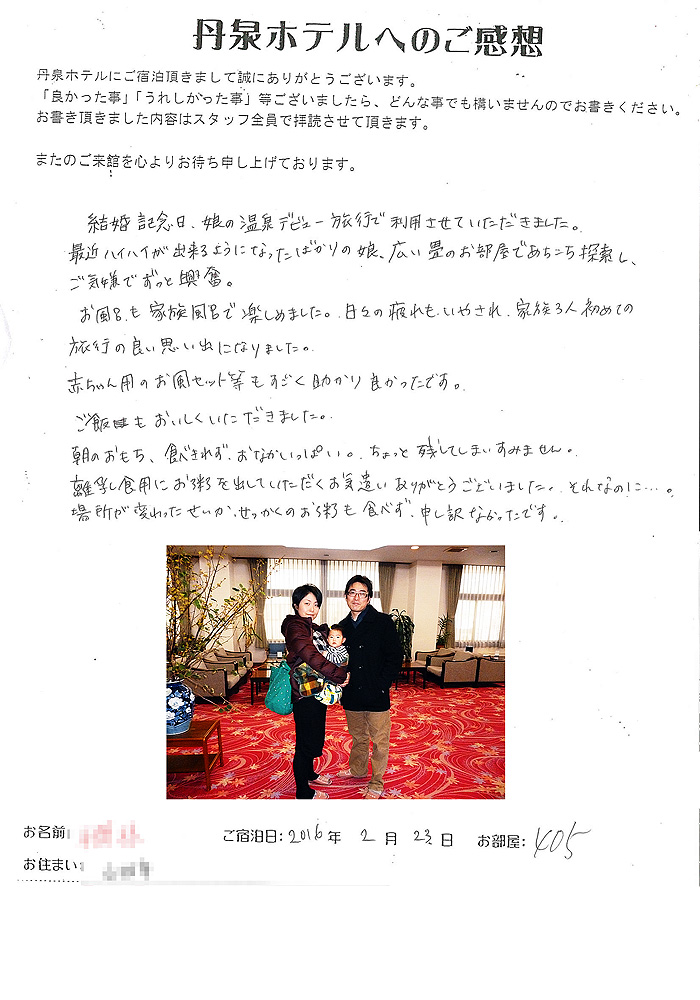 丹泉ホテルへのご感想
丹泉ホテルにご宿泊頂きまして誠にありがとうございます。
「良かった事」「うれしかった事」等ございましたら、どんな事でも構いませんのでお書きください。
お書き頂きました内容はスタッフ全員で拝読させて頂きます。
またのご来館を心よりお待ち申し上げております。
結婚記念日、娘の温泉デビュー旅行で利用させていただきました。
最近ハイハイが出来るようになったばかりの娘、広い畳のお部屋であちこち探索し、
ご気嫌でずっと興奮。
お風呂も家族風呂で楽しめました。日々の疲れもいやされ、家族3人初めての
旅行の良い思い出になりました。
赤ちゃん用のお風セット等もすごく助かり良かったです。
ご飯もおいしくいただきました。
朝のおもち、食べきれず、おなかいっぱい。ちょっと残してしまいすみません。
離乳食用にお粥を出していただくお気遣いありがとうございました。それなのに…。
場所が変わったせいか、せっかくのお粥も食べず、申し訳なかったです。
お名前:
ご宿泊日: 2016 年 2 月 23 日 お部屋: 405
お住まい: